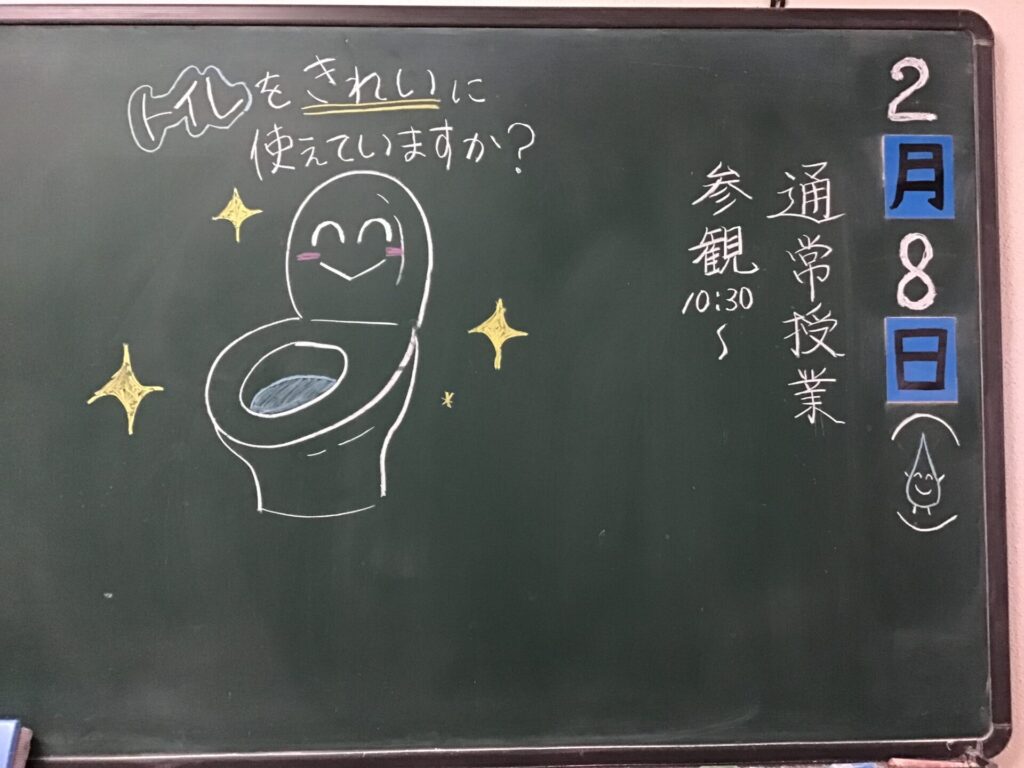 トイレをきれいに
使えていますか?
2月8日( )
通常授業
参観
10:30
〜